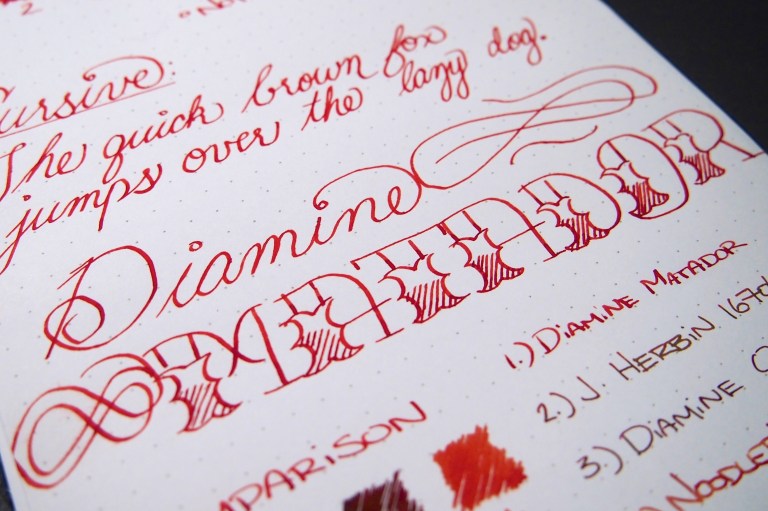 Cursive:
The quick brown fox
jumps over the lazy dog.
Diamine
MATADOR
1.) DIAMINE MATADOR
2.) J. HERBIN 1670
3.) DIAMINE